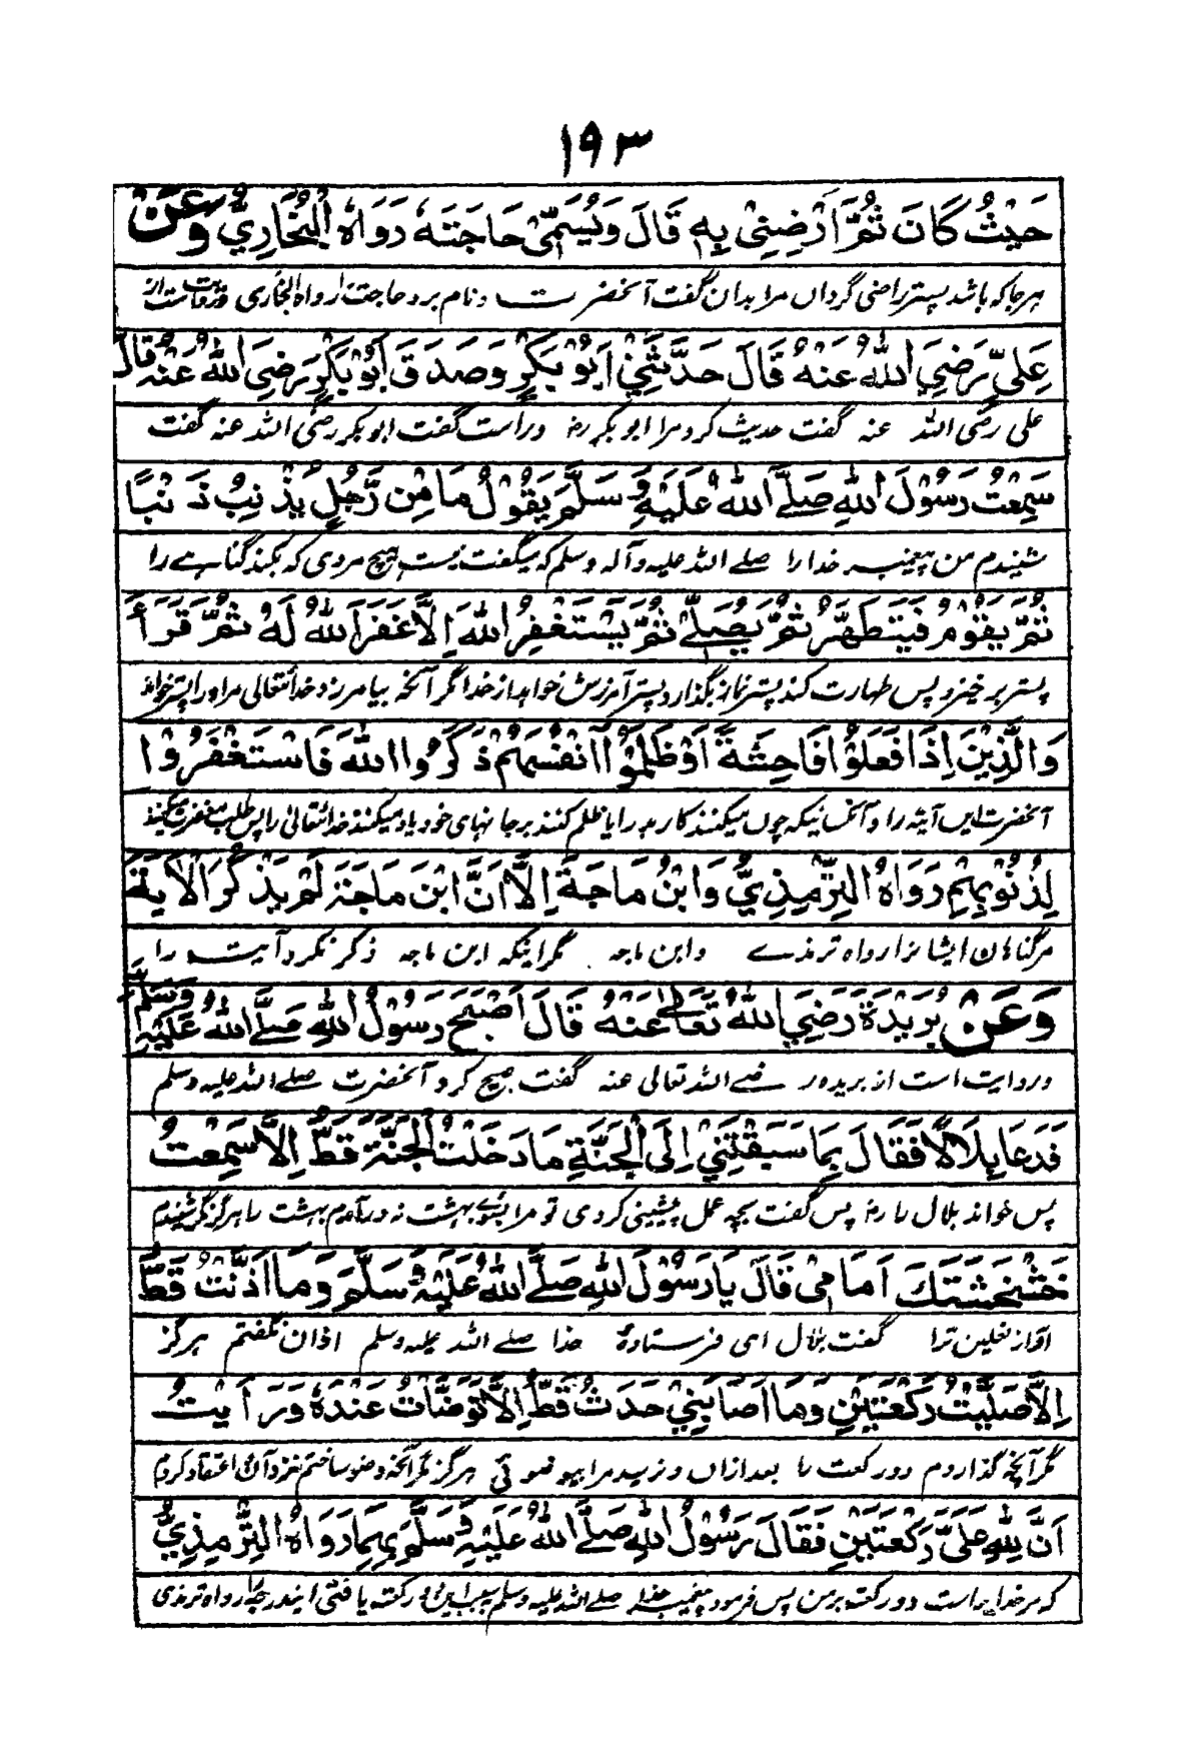 ۱۹۳
حَيْثُ كَانَ ثُمَّ اَرْضِنِىْ بِهٖ قَالَ وَيُسَمِّىْ حَاجَتَهٗ رَوَاهُ الْبُخَارِيُّ وَعَنْ
هر جا که باشد پستر راضی گرداں مرا بدان گفت آنحضرت و نام برد حاجتش را رواه البخاری و روایت است از
عَلِيٍّ رَضِيَ اللهُ عَنْهُ قَالَ حَدَّثَنِيْ اَبُوْ بَكْرٍ وَصَدَقَ اَبُوْ بَكْرٍ رَضِيَ اللهُ عَنْهُ قَالَ
علی رضی الله عنه گفت حدیث کرد مرا ابو بکر رض و راست گفت ابو بکر رضی الله عنه گفت
سَمِعْتُ رَسُوْلَ اللهِ صَلَّى اللهُ عَلَيْهِ وَسَلَّمَ يَقُوْلُ مَا مِنْ رَّجُلٍ يُذْنِبُ ذَنْبًا
شنیدم من پیغمبر خدا را صلے الله علیه و آله وسلم که میگفت نیست هیچ مردی که بکند گناهے را
ثُمَّ يَقُوْمُ فَيَتَطَهَّرُ ثُمَّ يُصَلِّيْ ثُمَّ يَسْتَغْفِرُ اللهَ اِلَّا غَفَرَ اللهُ لَهٗ ثُمَّ قَرَأَ
پستر بر خیزد پس طهارت کند پستر نماز بگذارد پستر آمرزش خواهد از خدا مگر آنکه بیامرزد خدا تعالی مر او را پستر خواند
وَالَّذِيْنَ اِذَا فَعَلُوْا فَاحِشَةً اَوْ ظَلَمُوْا اَنْفُسَهُمْ ذَكَرُوا اللهَ فَاسْتَغْفَرُوْا
آنحضرت ایں آیة را و آنکسانیکه چوں میکنند کار بد را یا ظلم کنند بر جانهای خود یاد میکنند خدا تعالی را پس طلب مغفرت میکنند
لِذُنُوْبِهِمْ رَوَاهُ التِّرْمِذِيُّ وَابْنُ مَاجَةَ اِلَّا اَنَّ ابْنَ مَاجَةَ لَمْ يَذْكُرِ الْاٰيَةَ
مر گناهان ایشانرا رواه ترمذے و ابن ماجه مگر اینکه ابن ماجه ذکر نکرد آیت را
وَعَنْ بُرَيْدَةَ رَضِيَ اللهُ تَعَالٰى عَنْهُ قَالَ اَصْبَحَ رَسُوْلُ اللهِ صَلَّى اللهُ عَلَيْهِ وَسَلَّمَ
و روایت است از بریده رضے الله تعالی عنه گفت صبح کرد آنحضرت صلے الله علیه وسلم
فَدَعَا بِلَالًا فَقَالَ بِمَا سَبَقْتَنِيْ اِلَى الْجَنَّةِ مَا دَخَلْتُ الْجَنَّةَ قَطُّ اِلَّا سَمِعْتُ
پس خواند بلال را رض پس گفت بچه عمل پیشینی کردی تو مرا بسوی بهشت نه در آمدم بهشت را هرگز مگر شنیدم
خَشْخَشَتَكَ اَمَامِيْ قَالَ يَا رَسُوْلَ اللهِ صَلَّى اللهُ عَلَيْهِ وَسَلَّمَ وَمَا اَذَّنْتُ قَطُّ
آواز نعلین ترا گفت بلال ای فرستادهٔ خدا صلے الله علیه وسلم اذان نگفتم هرگز
اِلَّا صَلَّيْتُ رَكْعَتَيْنِ وَمَا اَصَابَنِيْ حَدَثٌ قَطُّ اِلَّا تَوَضَّاْتُ عِنْدَهٗ وَرَاَيْتُ
مگر آنکه گذاردم دو رکعت را بعد ازاں و نرسید مرا بیوضوئی هرگز مگر آنکه وضو ساختم نزد آن و اعتقاد کردم
اَنَّ لِلّٰهِ عَلَيَّ رَكْعَتَيْنِ فَقَالَ رَسُوْلُ اللهِ صَلَّى اللهُ عَلَيْهِ وَسَلَّمَ بِهِمَا رَوَاهُ التِّرْمِذِيُّ
که مر خدا راست دو رکعت بر من پس فرمود پیغمبر خدا صلے الله علیه وسلم بسبب این دو رکعت یافتی ایندرجه را رواه ترمذی